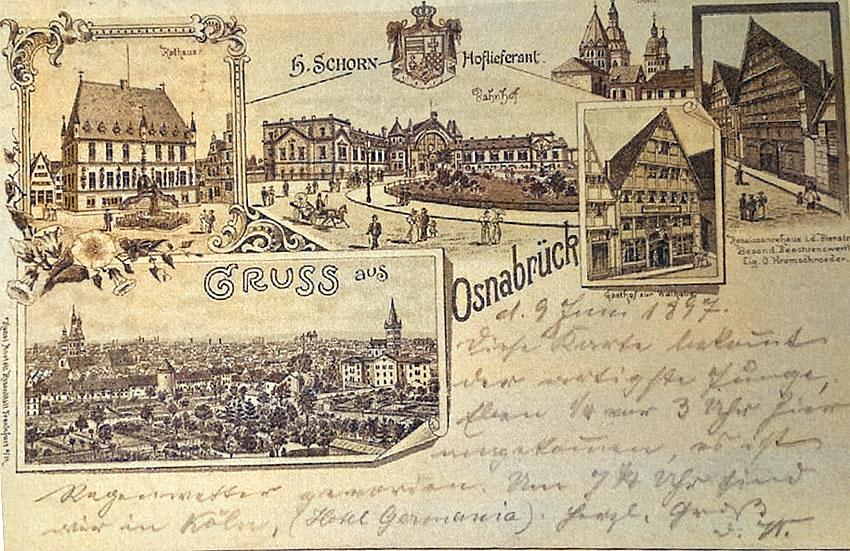 Rathaus
H. SCHORN Hoflieferant.
Bahnhof
Dom
Renaissancehaus i.d. Bierstr.
Besond. Beachtenswerth
Eig. O. Kromschroeder.
Gasthof zur Walhalla
GRUSS aus
Osnabrück
d. 9 Juni 1897.
Diese Karte bekommt
der artigste Junge,
Eben 1/4 vor 3 Uhr hier
angekommen, es ist
Regenwetter geworden. Um 7 Uhr sind
wir in Köln, (Hotel Germania). Herzl. Gruß